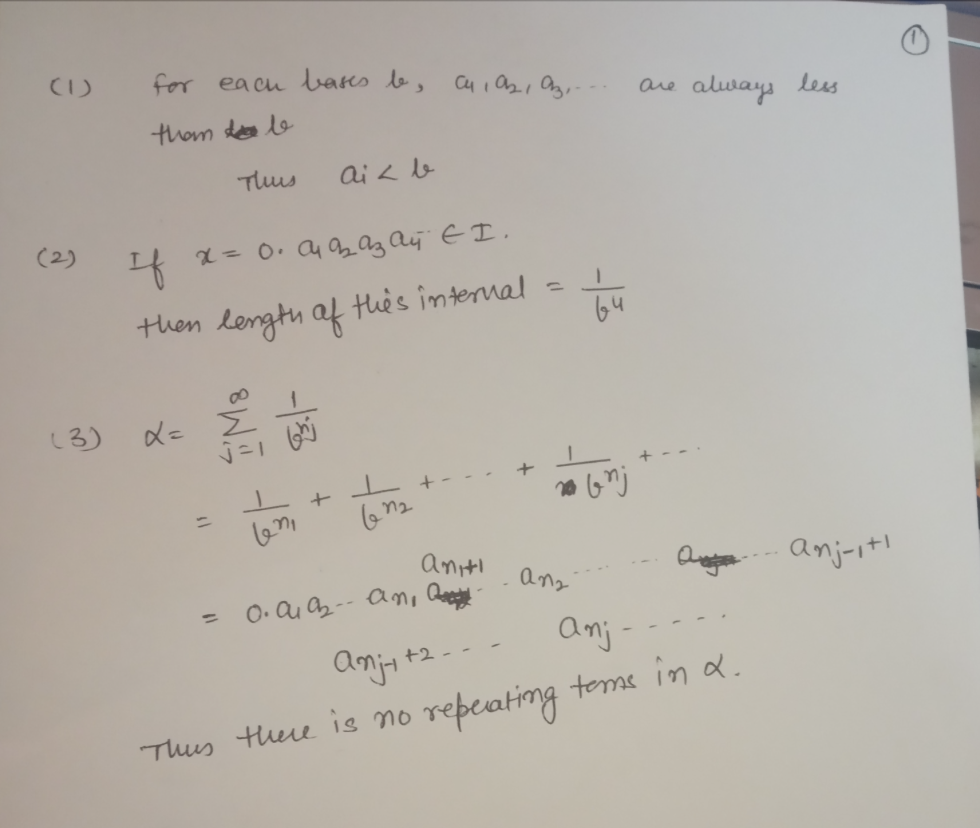 ①
(1) for each bases b, a₁, a₂, a₃, ... are always less
than b
Thus aᵢ < b
(2) If x = 0. a₁ a₂ a₃ a₄ ∈ I.
then length of this interval = 1/b⁴
(3) α = ∑_{j=1}^{∞} 1/b^{n_j}
= 1/b^{n₁} + 1/b^{n₂} + ---- + 1/b^{n_j} + ---
= 0. a₁ a₂ -- a_{n₁} a_{n₁+1} -- a_{n₂} ------ ---- a_{n_{j-1}+1}
a_{n_{j-1}+2} --- a_{n_j} -----
Thus there is no repeating terms in α.